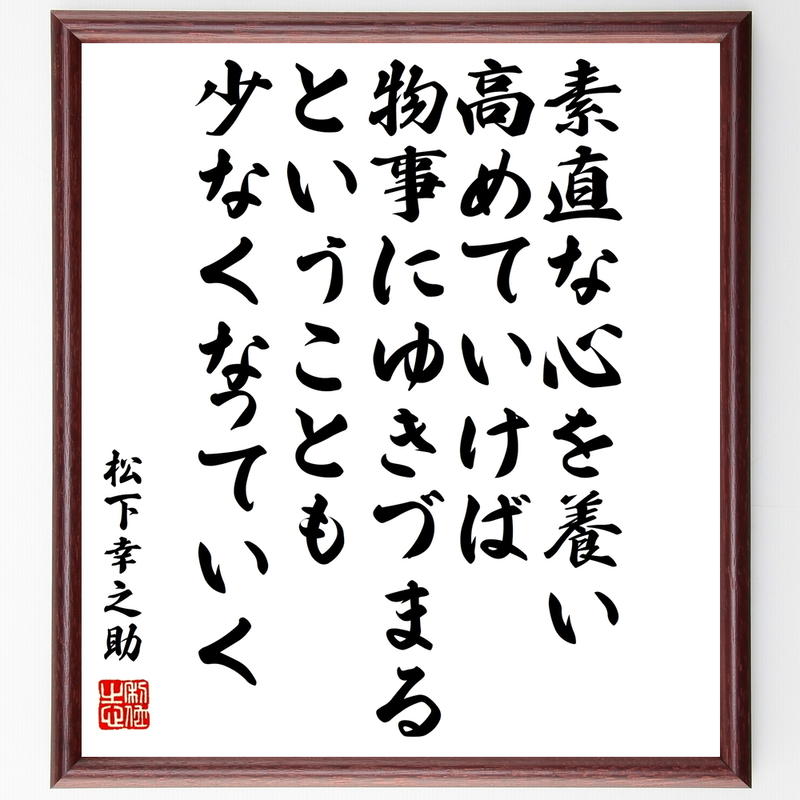 素直な心を養い
高めていけば
物事にゆきづまる
ということも
少なくなっていく
松下幸之助